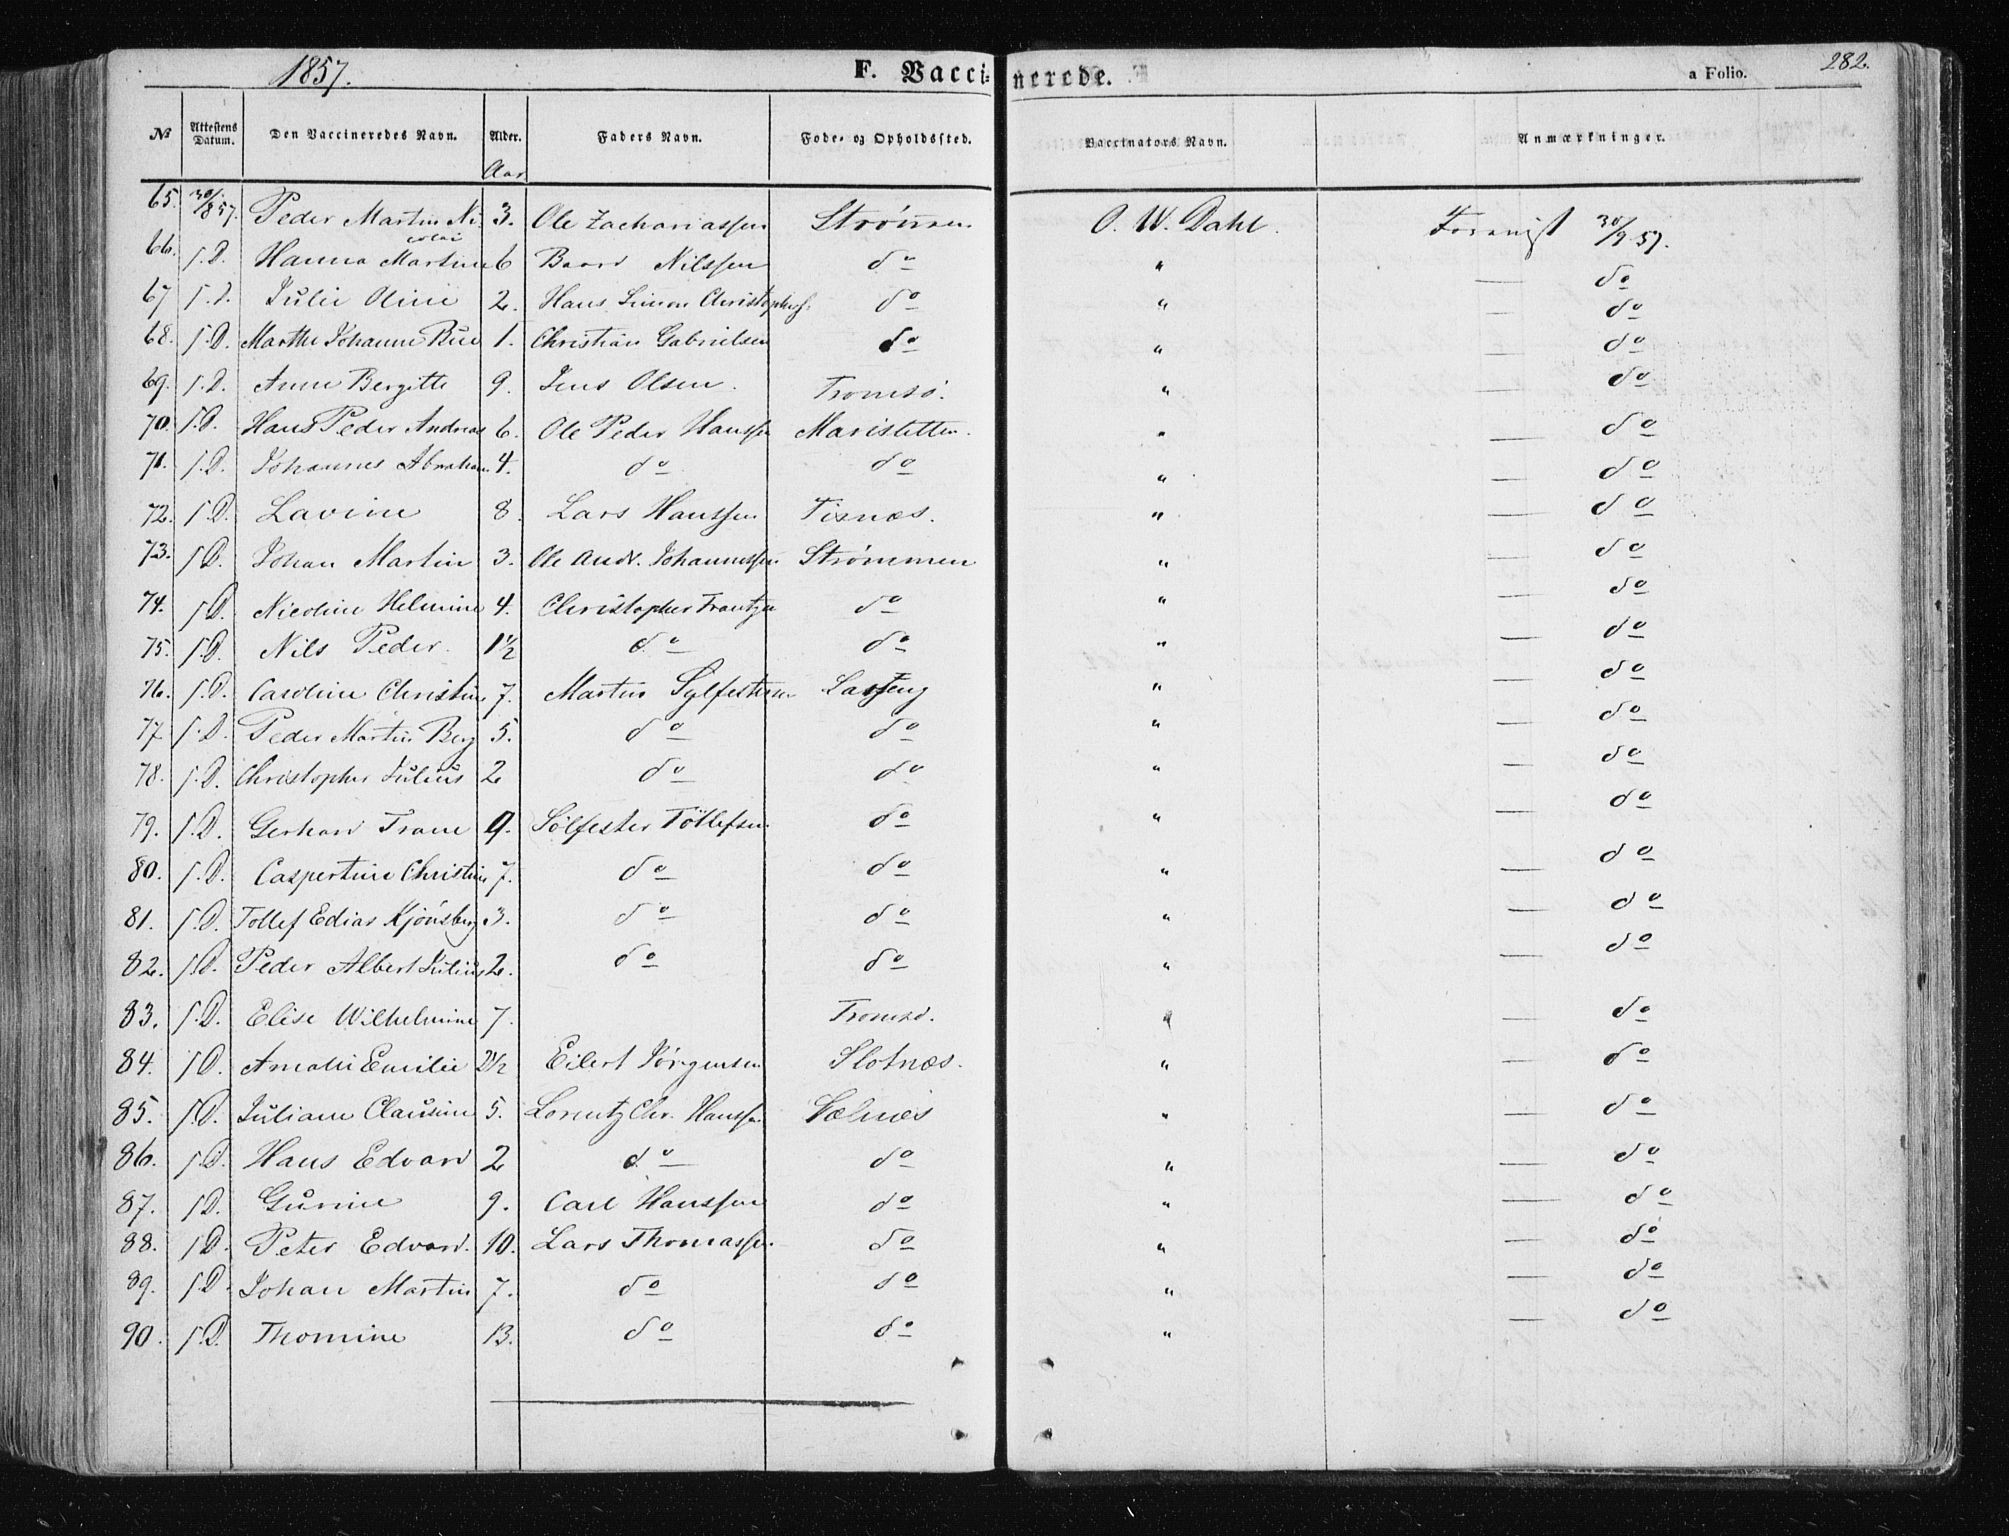 1857. F. Vaccinerede. a Folio. 282.
№ Attestens Datum. Den Vaccineredes Navn. Alder. Faders Navn. Føde- og Opholdssted. Vaccinators Navn. Anmærkninger.
Aar
65. 30/8 57. Peder Martin Ni- 3. Ole Zachariassen Strømmen O. W. Dahl. Foreviist 30/9 57.
colai
66. s.D. Hanna Martine 6 Baard Nilssen do " — do
67 s.D. Julie Oline 2. Hans Simon Christophers. do " — do
68. s.D. Marthe Johanne 1. Christian Gabrielsen do " — do
69. s.D. Anne Bergitte 9. Jens Olsen. Tromsø. " — do
70. s.D. Hans Peder Andreas 6. Ole Peder Hanssen Maristetten. " — do
71. s.D. Johannes Abraham 4. do do " — do
72. s.D. Lavine 8. Lars Hanssen Tisnæs. " — do
73. s.D. Johan Martin 3. Ole Andr. Johannessen Strømmen " — do
74. s.D. Nicoline Helmine 4. Christopher Frantzen do " — do
75. s.D. Nils Peder. 1½ do do " — do
76. s.D. Caroline Christine 7. Martin Sylfestersen " — do
77. s.D. Peder Martin Berg 5. do do " — do
78. s.D. Christopher Julius 2 do do " — do
79. s.D. Gerhard Trane 9. Sølfester Tøllefsen do " — do
80. s.D. Caspertine Christine 7. do do " — do
81. s.D. Tollef Edias Kjønsberg 3. do do " — do
82. s.D. Peder Albert Julius 2. do do " — do
83. s.D. Elise Wilhelmine 7. Tromsø. " — do
84. s.D. Amalie Emilie 2½ Eilert Jørgensen Slotnæs. " — do
85. s.D. Juliane Clausine 5. Lorentz Chr. Hanssen Sælnæs " — do
86. s.D. Hans Edvard 2 do do " — do
87. s.D. Gurine 9. Carl Hanssen do " — do
88. s.D. Peter Edvard. 10. Lars Thomassen do " — do
89. s.D. Johan Martin 7. do do " — do
90. s.D. Thomine 13. do do " — do